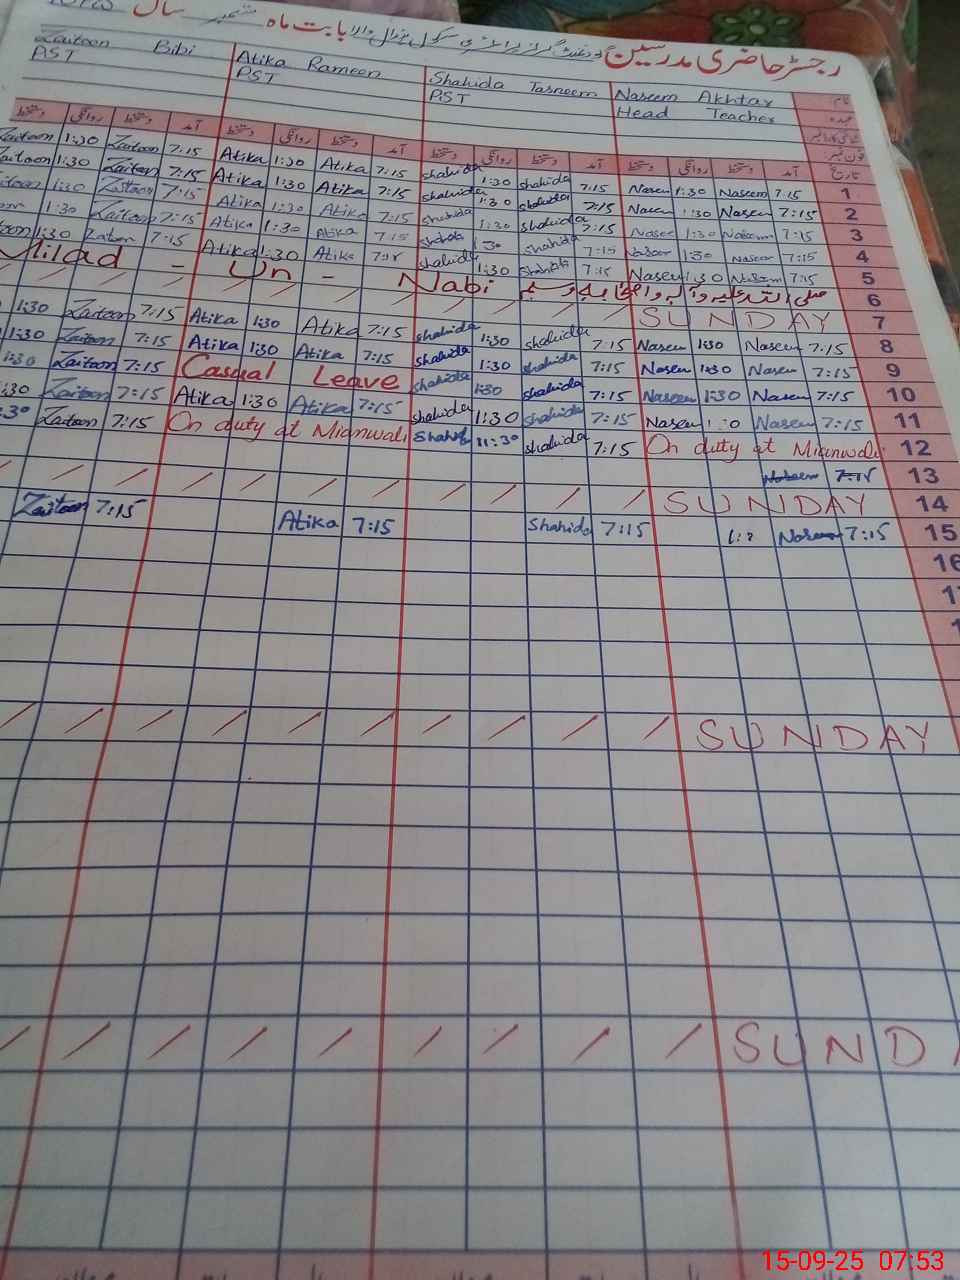 رجسٹر حاضری مدرسین گورنمنٹ گرلز پرائمری سکول والا بابت ماہ ستمبر سال
Zaitoon Bibi Atika Rameen Shahida Tasneem Naseem Akhtar نام
PST PST PST Head Teacher عہدہ
دستخط روانگی دستخط آمد دستخط روانگی دستخط آمد دستخط روانگی دستخط آمد دستخط روانگی دستخط آمد تاریخ
Zaitoon 1:30 Zaitoon 7:15 Atika 1:30 Atika 7:15 Shahida 1:30 Shahida 7:15 Naseem 1:30 Naseem 7:15 1
1:30 Zaitoon 7:15 Atika 1:30 Atika 7:15 Shahida 1:30 Shahida 7:15 Naseem 1:30 Naseem 7:15 2
1:30 Zaitoon 7:15 Atika 1:30 Atika 7:15 Shahida 1:30 Shahida 7:15 Naseem 1:30 Naseem 7:15 3
1:30 Zaitoon 7:15 Atika 1:30 Atika 7:15 Shahida 1:30 Shahida 7:15 Naseem 1:30 Naseem 7:15 4
1:30 Zaitoon 7:15 Atika 1:30 Atika 7:15 Shahida 1:30 Shahida 7:15 Naseem 1:30 Naseem 7:15 5
Milad - Un - Nabi صلی اللہ علیہ وآلہ واصحابہ وسلم 6
SUNDAY 7
1:30 Zaitoon 7:15 Atika 1:30 Atika 7:15 Shahida 1:30 Shahida 7:15 Naseem 1:30 Naseem 7:15 8
1:30 Zaitoon 7:15 Atika 1:30 Atika 7:15 Shahida 1:30 Shahida 7:15 Naseem 1:30 Naseem 7:15 9
1:30 Zaitoon 7:15 Casual Leave Shahida 1:30 Shahida 7:15 Naseem 1:30 Naseem 7:15 10
:30 Zaitoon 7:15 Atika 1:30 Atika 7:15 Shahida 1:30 Shahida 7:15 Naseem Naseem 7:15 11
:30 Zaitoon 7:15 On duty at Mianwali Shahida 11:30 Shahida 7:15 On duty at Mianwali 12
Naseem 7:15 13
SUNDAY 14
Zaitoon 7:15 Atika 7:15 Shahida 7:15 Naseem 7:15 15
16
SUNDAY
SUND
15-09-25 07:53